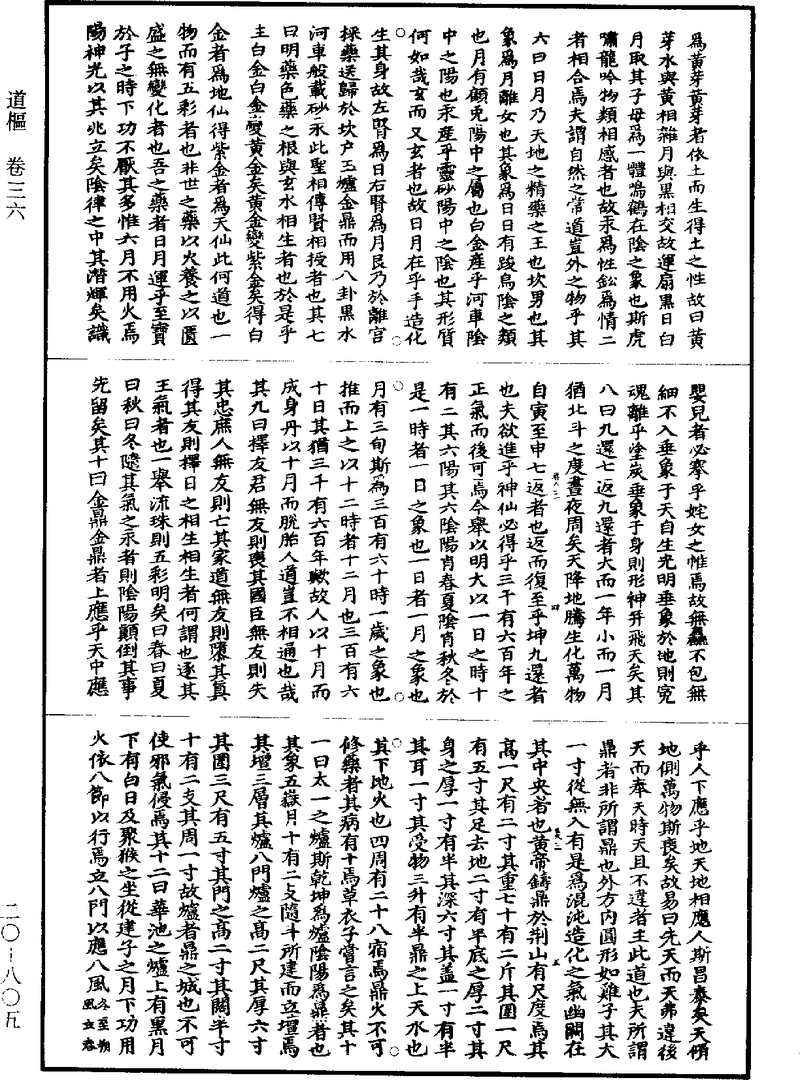 道樞 卷三六
爲黃芽黃芽者依土而生得土之性故曰黃
芽水與黃相雜月與黑相交故運扇黑日白
月取其子母爲一體鳴鶴在陰之象也斯虎
嘯龍吟物類相感者也故汞爲性鈆爲情二
者相合焉夫謂自然之常道豈外之物乎其
六曰日月乃天地之精藥之王也坎男也其
象爲月離女也其象爲日日有踆烏陰之類
也月有顧兎陽中之屬也白金產乎河車陰
中之陽也汞產乎靈砂陽中之陰也其形質
何如哉玄而又玄者也故日月在乎手造化
生其身故左腎爲日右腎爲月艮乃於離宮
採藥送歸於坎户玉爐金鼎而用八卦黑水
河車般載砂汞此聖相傳賢相授者也其七
曰明藥色藥之根與玄水相生者也於是乎
主白金白金變黃金矣黃金變紫金矣得白
金者爲地仙得紫金者爲天仙此何道也一
物而有五彩者也非世之藥以火養之以匱
盛之無變化者也吾之藥者日月運乎至寶
於子之時下功不厭其多惟六月不用火焉
陽神光以其兆立矣陰律之中其潛輝矣識
嬰兒者必搴乎姹女之帷焉故無麤不包無
細不入垂象于天自生光明垂象於地則宄
魂離乎塗炭垂象于身則形神升飛天矣其
八曰九還七返九還者大而一年小而一月
猶北斗之度晝夜周矣天降地騰生化萬物
自寅至申七返者也返而復至乎坤九還者
也夫欲進乎神仙必得乎三千有六百年之
正氣而後可焉今舉以明大以一日之時十
有二其六陽其六陰陽肖春夏陰肖秋冬於
是一時者一日之象也一日者一月之象也
月有三旬斯爲三百有六十時一歲之象也
推而上之以十二時者十二月也三百有六
十日其猶三千有六百年歟故人以十月而
成身丹以十月而脫胎人道豈不相通也哉
其九曰擇友君無友則喪其國臣無友則失
其忠庶人無友則亡其家道無友則隳其真
得其友則擇日之相生相生者何謂也逐其
王氣者也一舉流珠則五彩明矣曰春曰夏
曰秋曰冬隨其氣之汞者則陰陽顛倒其事
先留矣其十曰金鼎金鼎者上應乎天中應
乎人下應乎地天地相應人斯昌泰矣天傾
地側萬物斯喪矣故易曰先天而天弗違後
天而奉天時天且不違者王此道也夫所謂
鼎者非所謂鼎也外方内圓形如雞子其大
一寸從無入有是爲混沌造化之氣幽閟在
其中央者也黃帝鑄鼎於荆山有尺度焉其
高一尺有二寸其重七十有二斤其圍一尺
有五寸其足去地二寸有半底之厚二寸其
身之厚一寸有半其深六寸其盖一寸有半
其耳一寸其受物三升有半鼎之上天水也
其下地火也四周有二十八宿焉鼎火不可
修藥者其病有十焉草衣子嘗言之矣其十
一曰太一之爐斯乾坤爲爐陰陽爲鼎者也
其象五嶽月十有二攴隨斗所建而立壇焉
其壇三層其爐八門爐之高二尺其厚六寸
其圍三尺有五寸其門之高二寸其闊半寸
十有二支其周一寸故爐者鼎之城也不可
使邪氣侵焉其十二曰華池之爐上有黑月
下有白日及聚猴之坐從建子之月下功用
火依八節以行焉立八門以應八風冬至朔風立春
二〇－八〇五